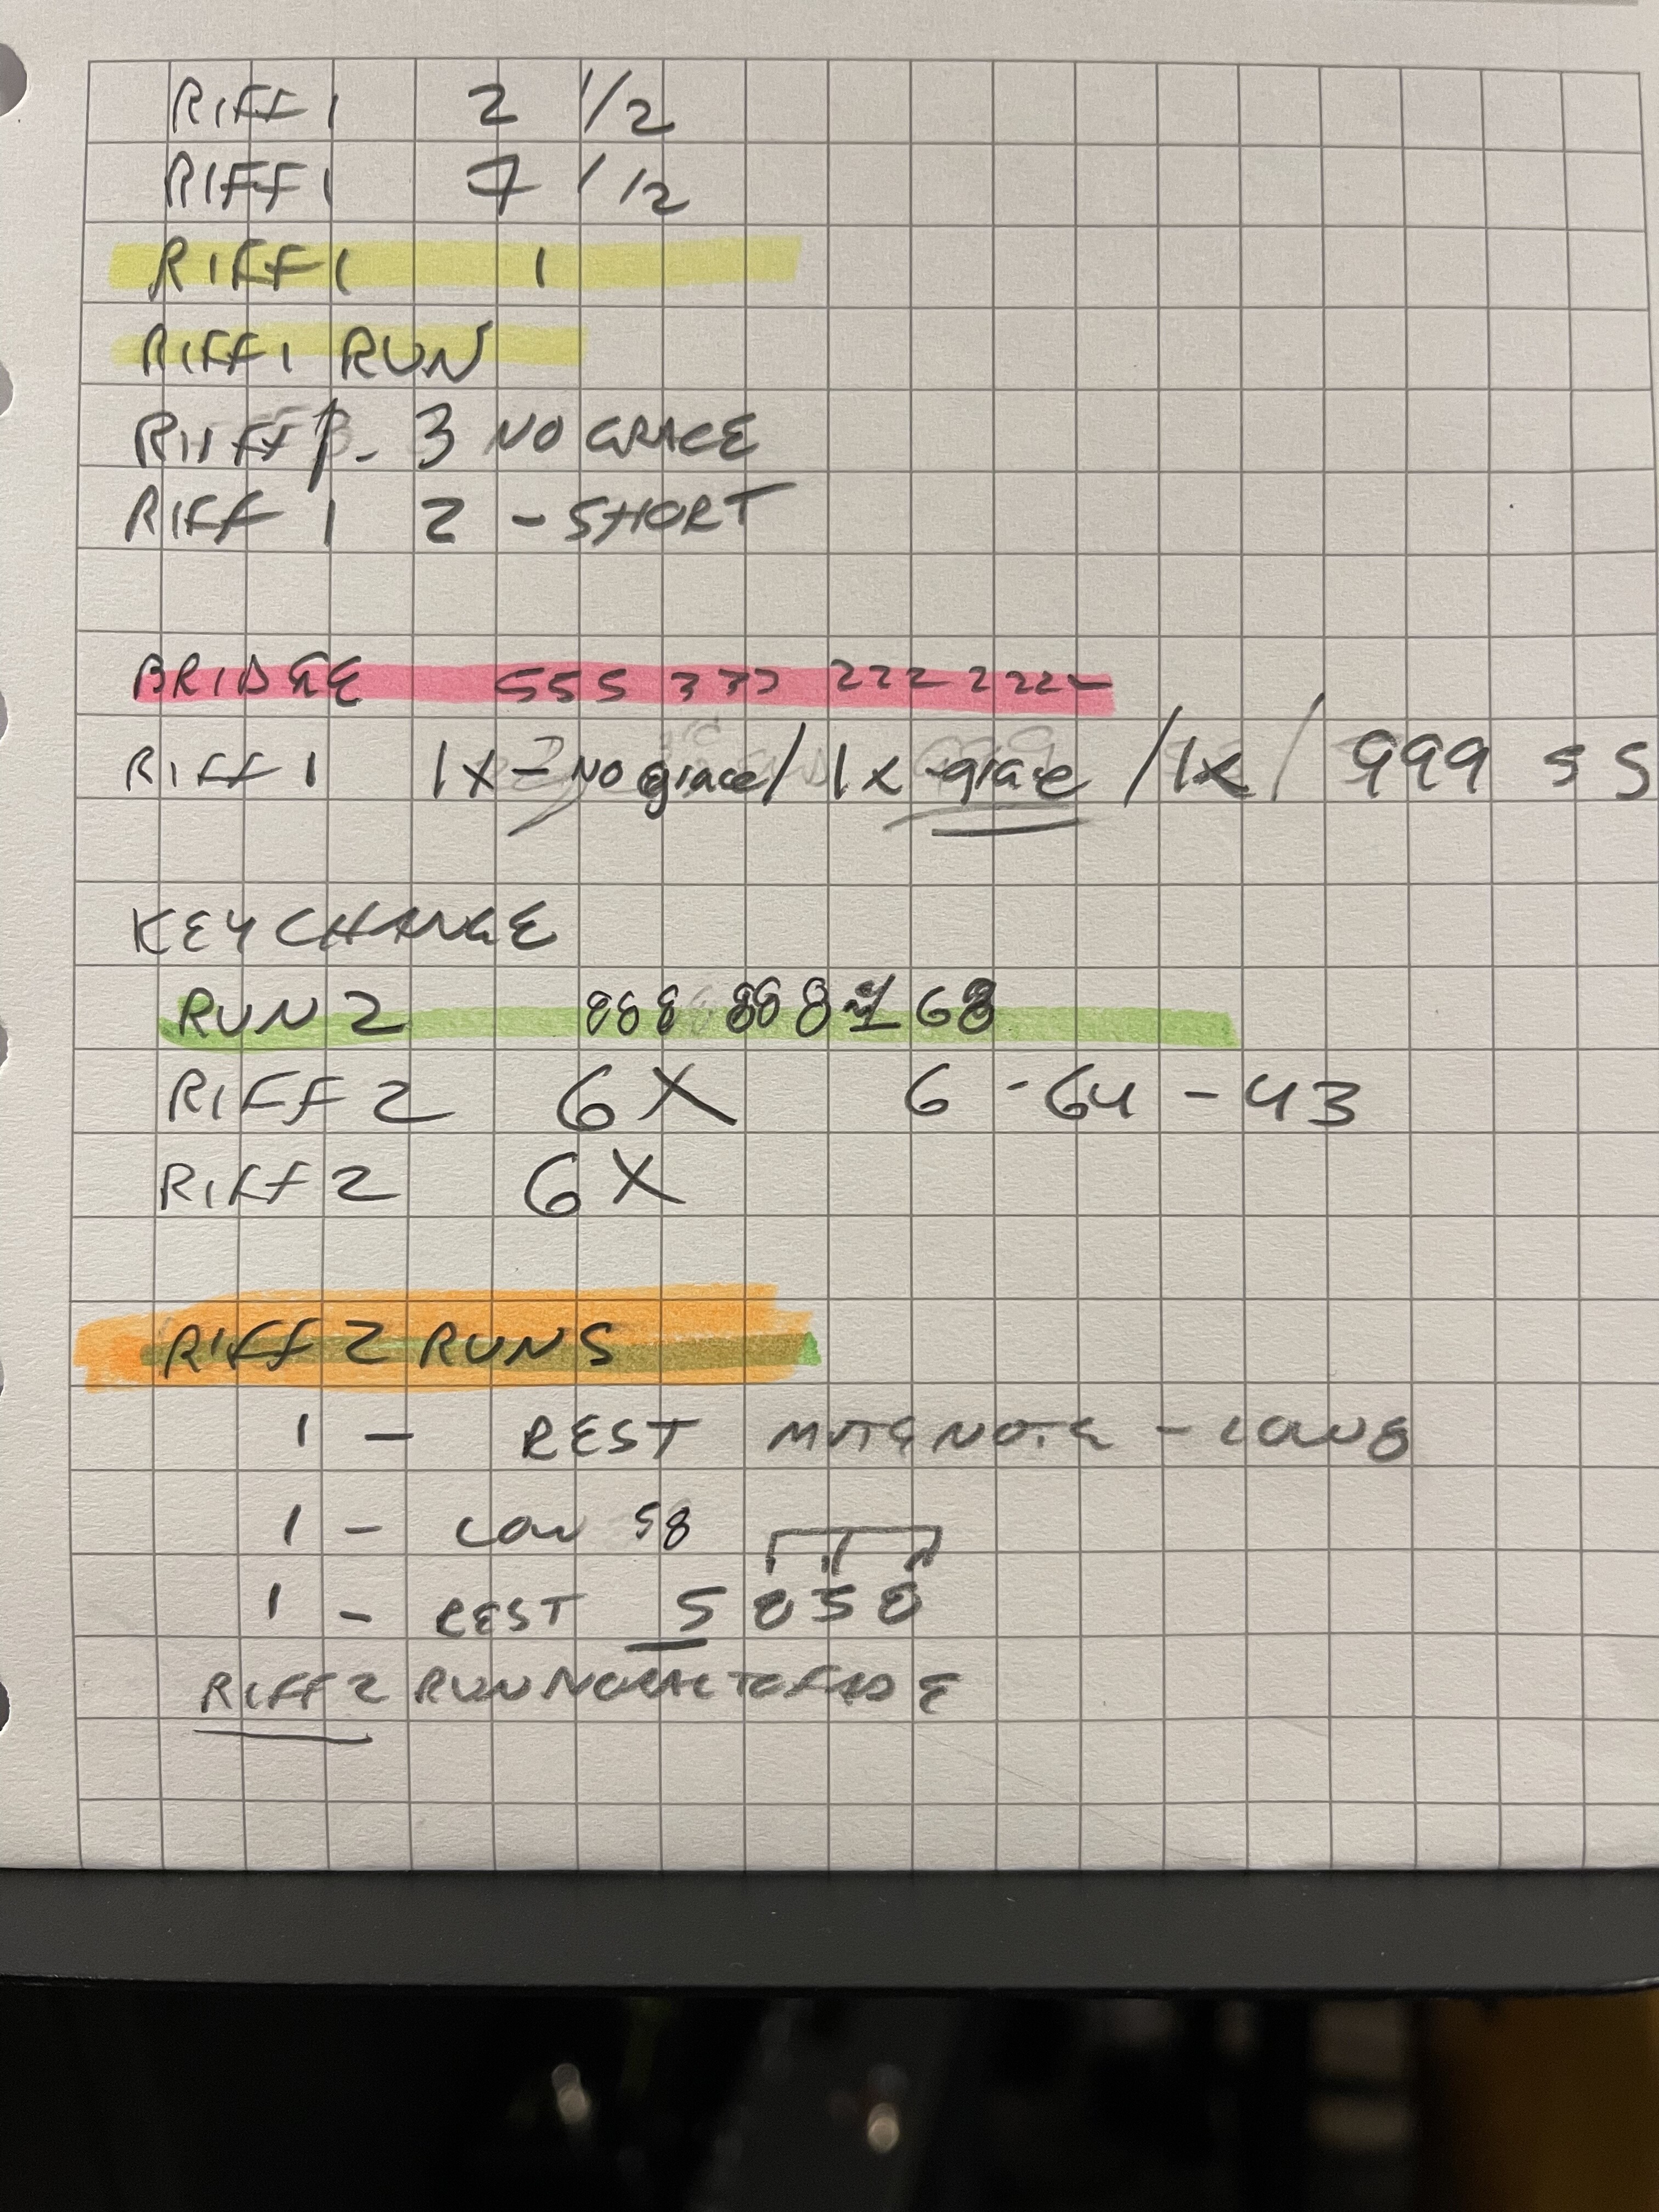 RIFF 1 2 1/2
RIFF 1 7 1/2
RIFF 1 1
RIFF 1 RUN
RIFF 1 - 3 NO GRACE
RIFF 1 2 - SHORT
BRIDGE 555 333 222 2222
RIFF 1 1X - NO grace / 1X - grace / 1X / 999 5 5
KEY CHANGE
RUN 2 888 888 68
RIFF 2 6X 6 - 64 - 43
RIFF 2 6X
RIFF 2 RUNS
1 - REST MUTE NOTE - LOW 8
1 - LOW 58
1 - REST 5 8 5 8
RIFF 2 RUN TO FADE